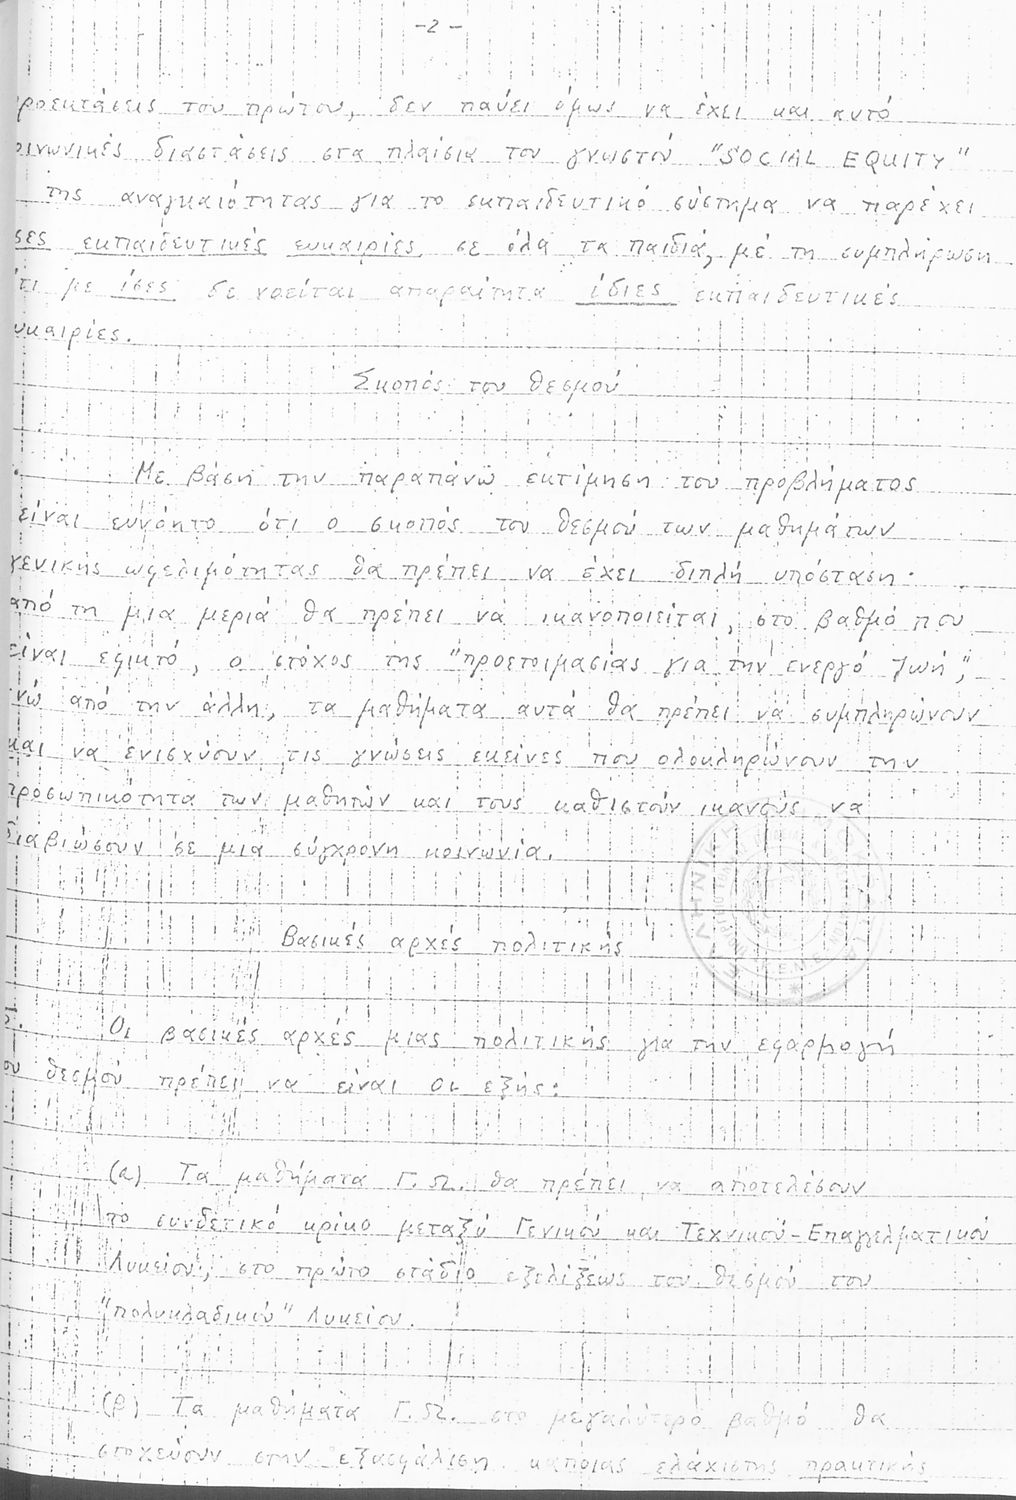 -2-
προεκτάσεις του πρώτου, δεν παύει όμως να έχει και αυτό
οινωνικές διαστάσεις στα πλαίσια του γνωστού "SOCIAL EQUITY"
της αναγκαιότητας για το εκπαιδευτικό σύστημα να παρέχει
σες εκπαιδευτικές ευκαιρίες σε όλα τα παιδιά, μέ τη συμπλήρωση
ότι με ίσες δε νοείται απαραίτητα ίδιες εκπαιδευτικές
υκαιρίες.
Σκοπός του θεσμού
Με βάση την παραπάνω εκτίμηση του προβλήματος
είναι ευνόητο ότι ο σκοπός του θεσμού των μαθημάτων
γενικής ωφελιμότητας θα πρέπει να έχει διπλή υπόσταση·
από τη μια μεριά θα πρέπει να ικανοποιείται, στο βαθμό που
είναι εφικτό, ο στόχος της "προετοιμασίας για την ενεργό ζωή",
ενώ από την άλλη, τα μαθήματα αυτά θα πρέπει να συμπληρώνουν
και να ενισχύουν τις γνώσεις εκείνες που ολοκληρώνουν την
προσωπικότητα των μαθητών και τους καθιστούν ικανούς να
διαβιώσουν σε μια σύγχρονη κοινωνία.
Βασικές αρχές πολιτικής
5. Οι βασικές αρχές μιας πολιτικής για την εφαρμογή
ου θεσμού πρέπει να είναι οι εξής:
(α) Τα μαθήματα Γ.Ω. θα πρέπει να αποτελέσουν
το συνδετικό κρίκο μεταξύ Γενικού και Τεχνικού-Επαγγελματικού
Λυκείου, στο πρώτο στάδιο εξελίξεως του θεσμού του
"πολυκλαδικού" Λυκείου.
(β) Τα μαθήματα Γ.Ω. στο μεγαλύτερο βαθμό θα
στοχεύουν στην εξασφάλιση κάποιας ελάχιστης πρακτικής